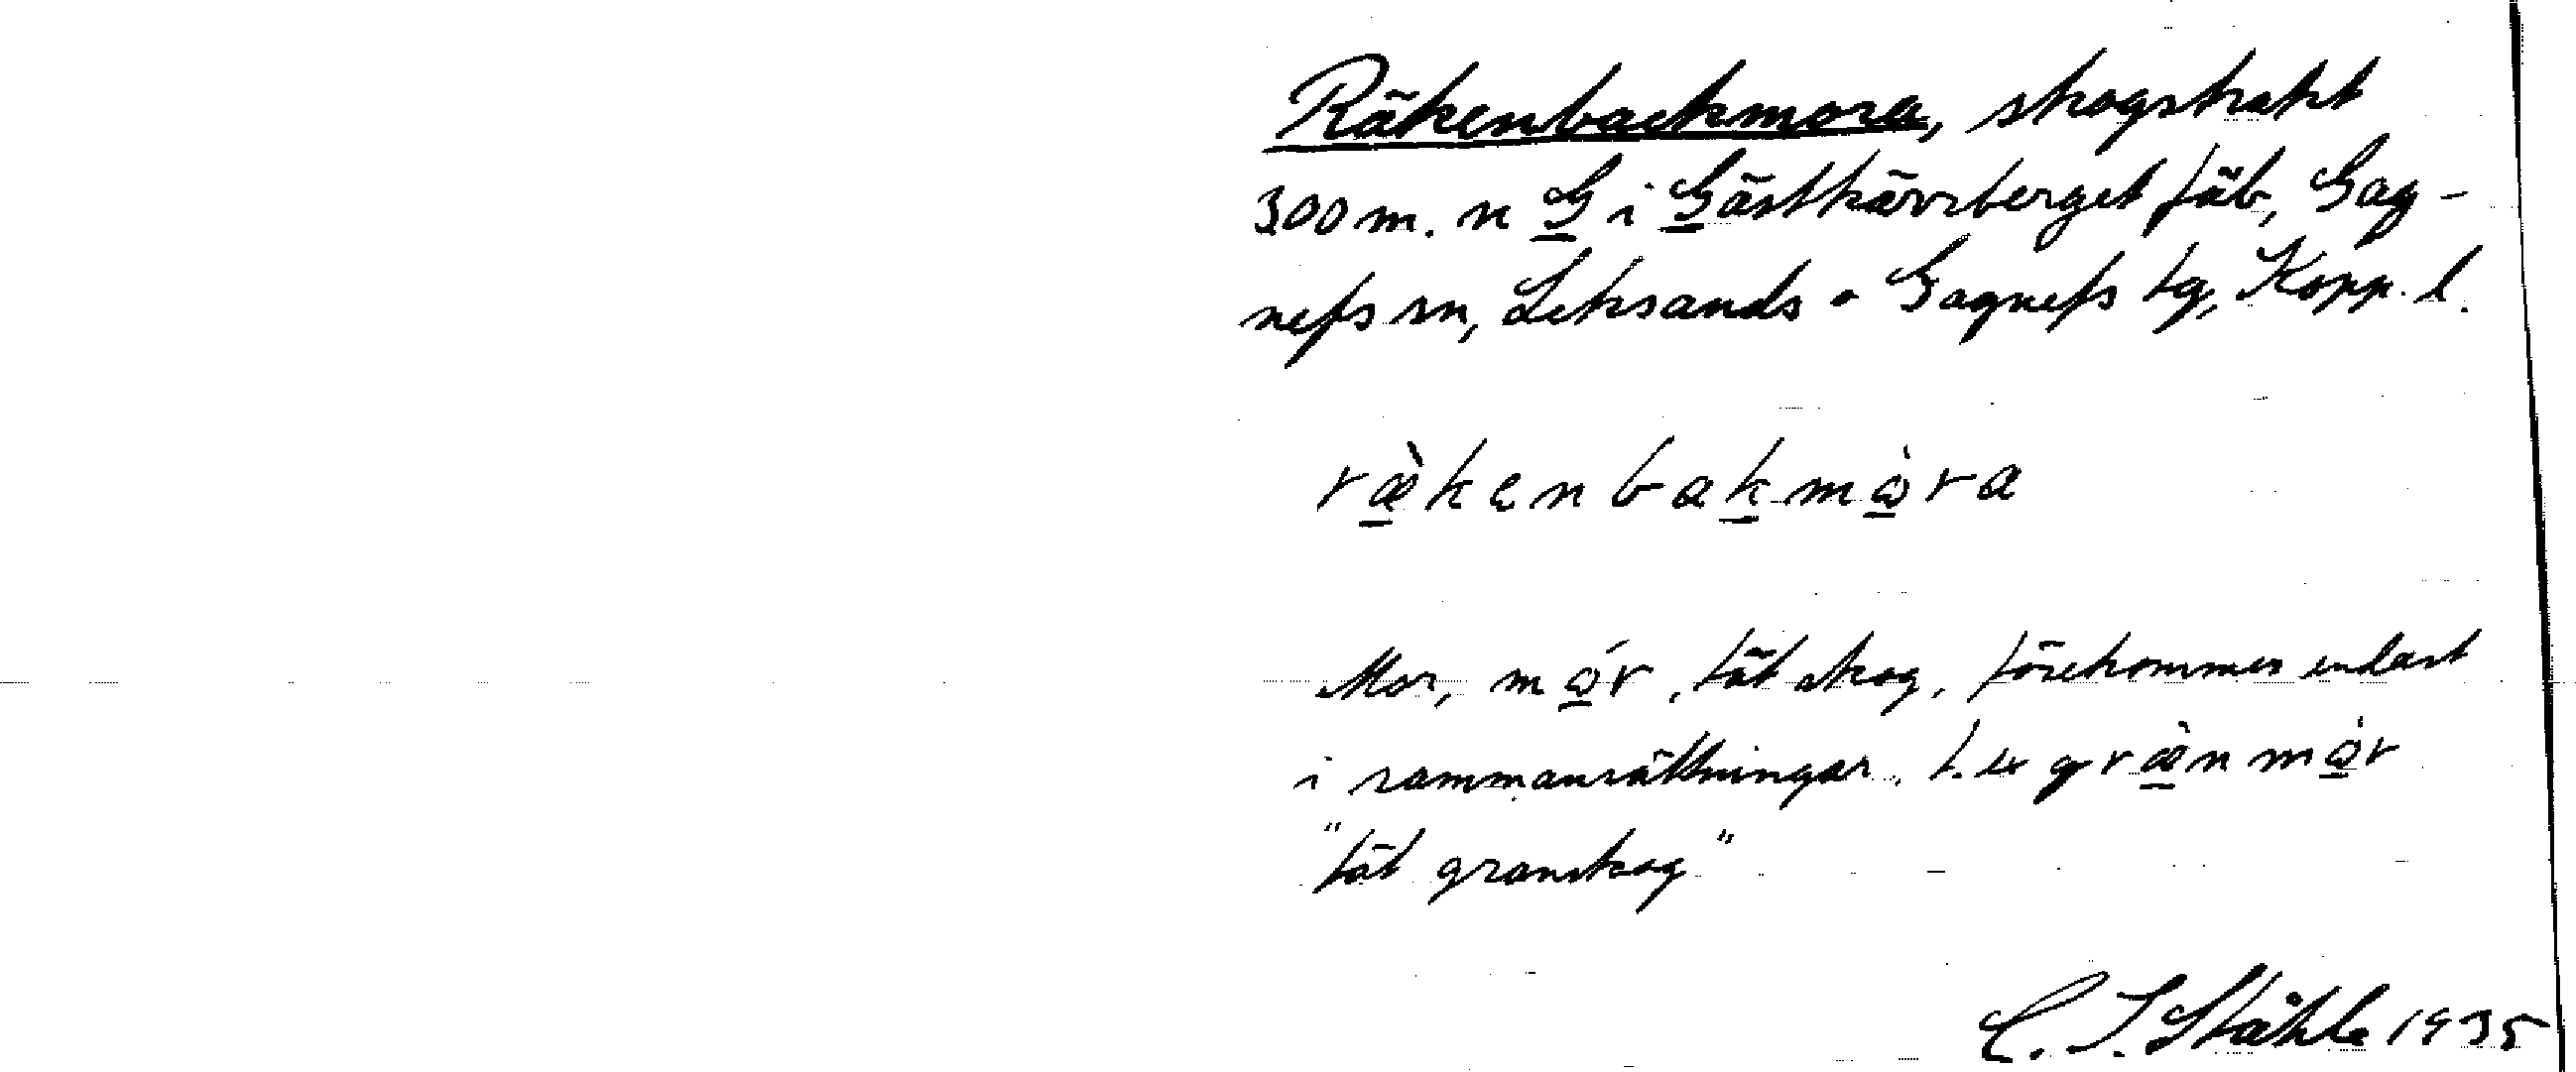 Räkenbackmora, skogstrakt
300 m. n G i Gästkärrberget fäb, Gag-
nefs sn, Leksands o Gagnefs tg, Kopp. l.
ræ̀kenbakmòra
Mor, mór, tät skog, förekommer endast
i sammansättningar. t. ex græ̀nmòr
"tät granskog"
C. I. Ståhle 1935